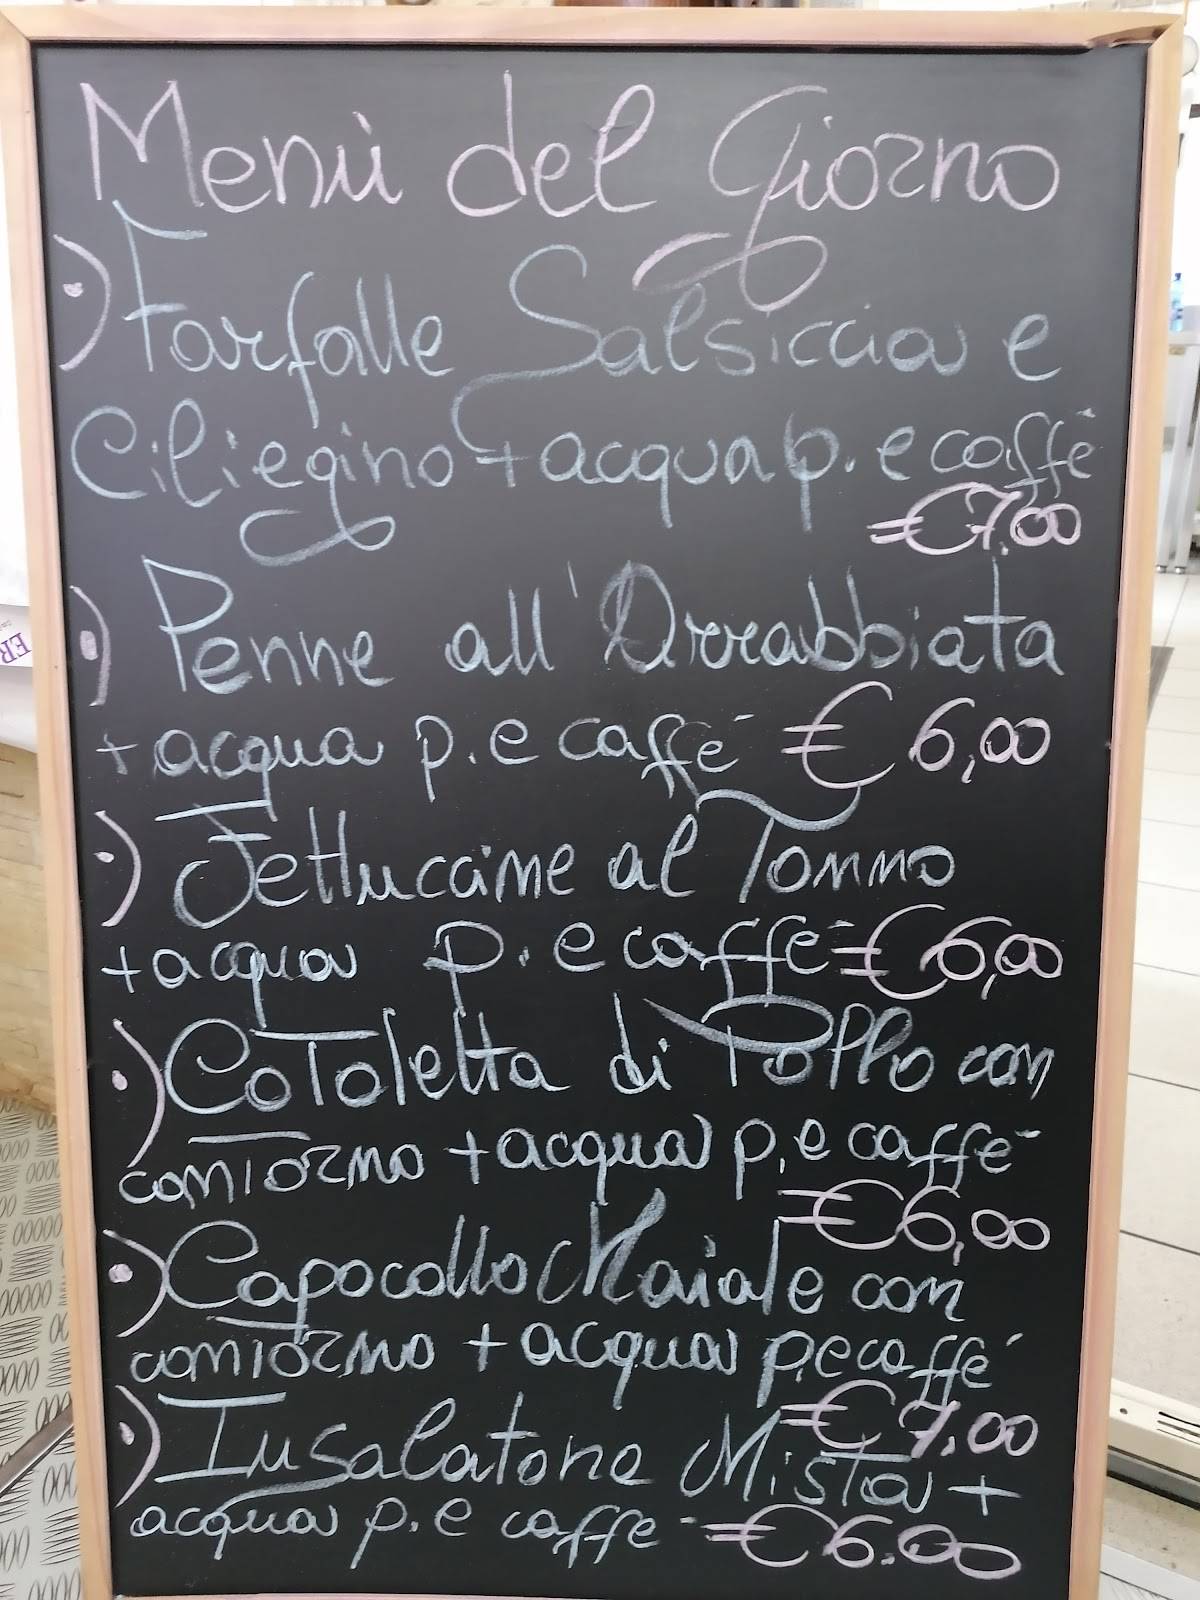 Menù del Giorno
•) Farfalle Salsiccia e
Ciliegino + acqua p. e caffè
€ 7,00
•) Penne all'Arrabbiata
+ acqua p. e caffè € 6,00
•) Fettuccine al Tonno
+ acqua p. e caffè € 6,00
•) Cotoletta di Pollo con
contorno + acqua p. e caffè
€ 6,00
•) Capocollo Maiale con
contorno + acqua p. e caffè
€ 7.00
•) Insalatona Mista +
acqua p. e caffè € 6.00
ER